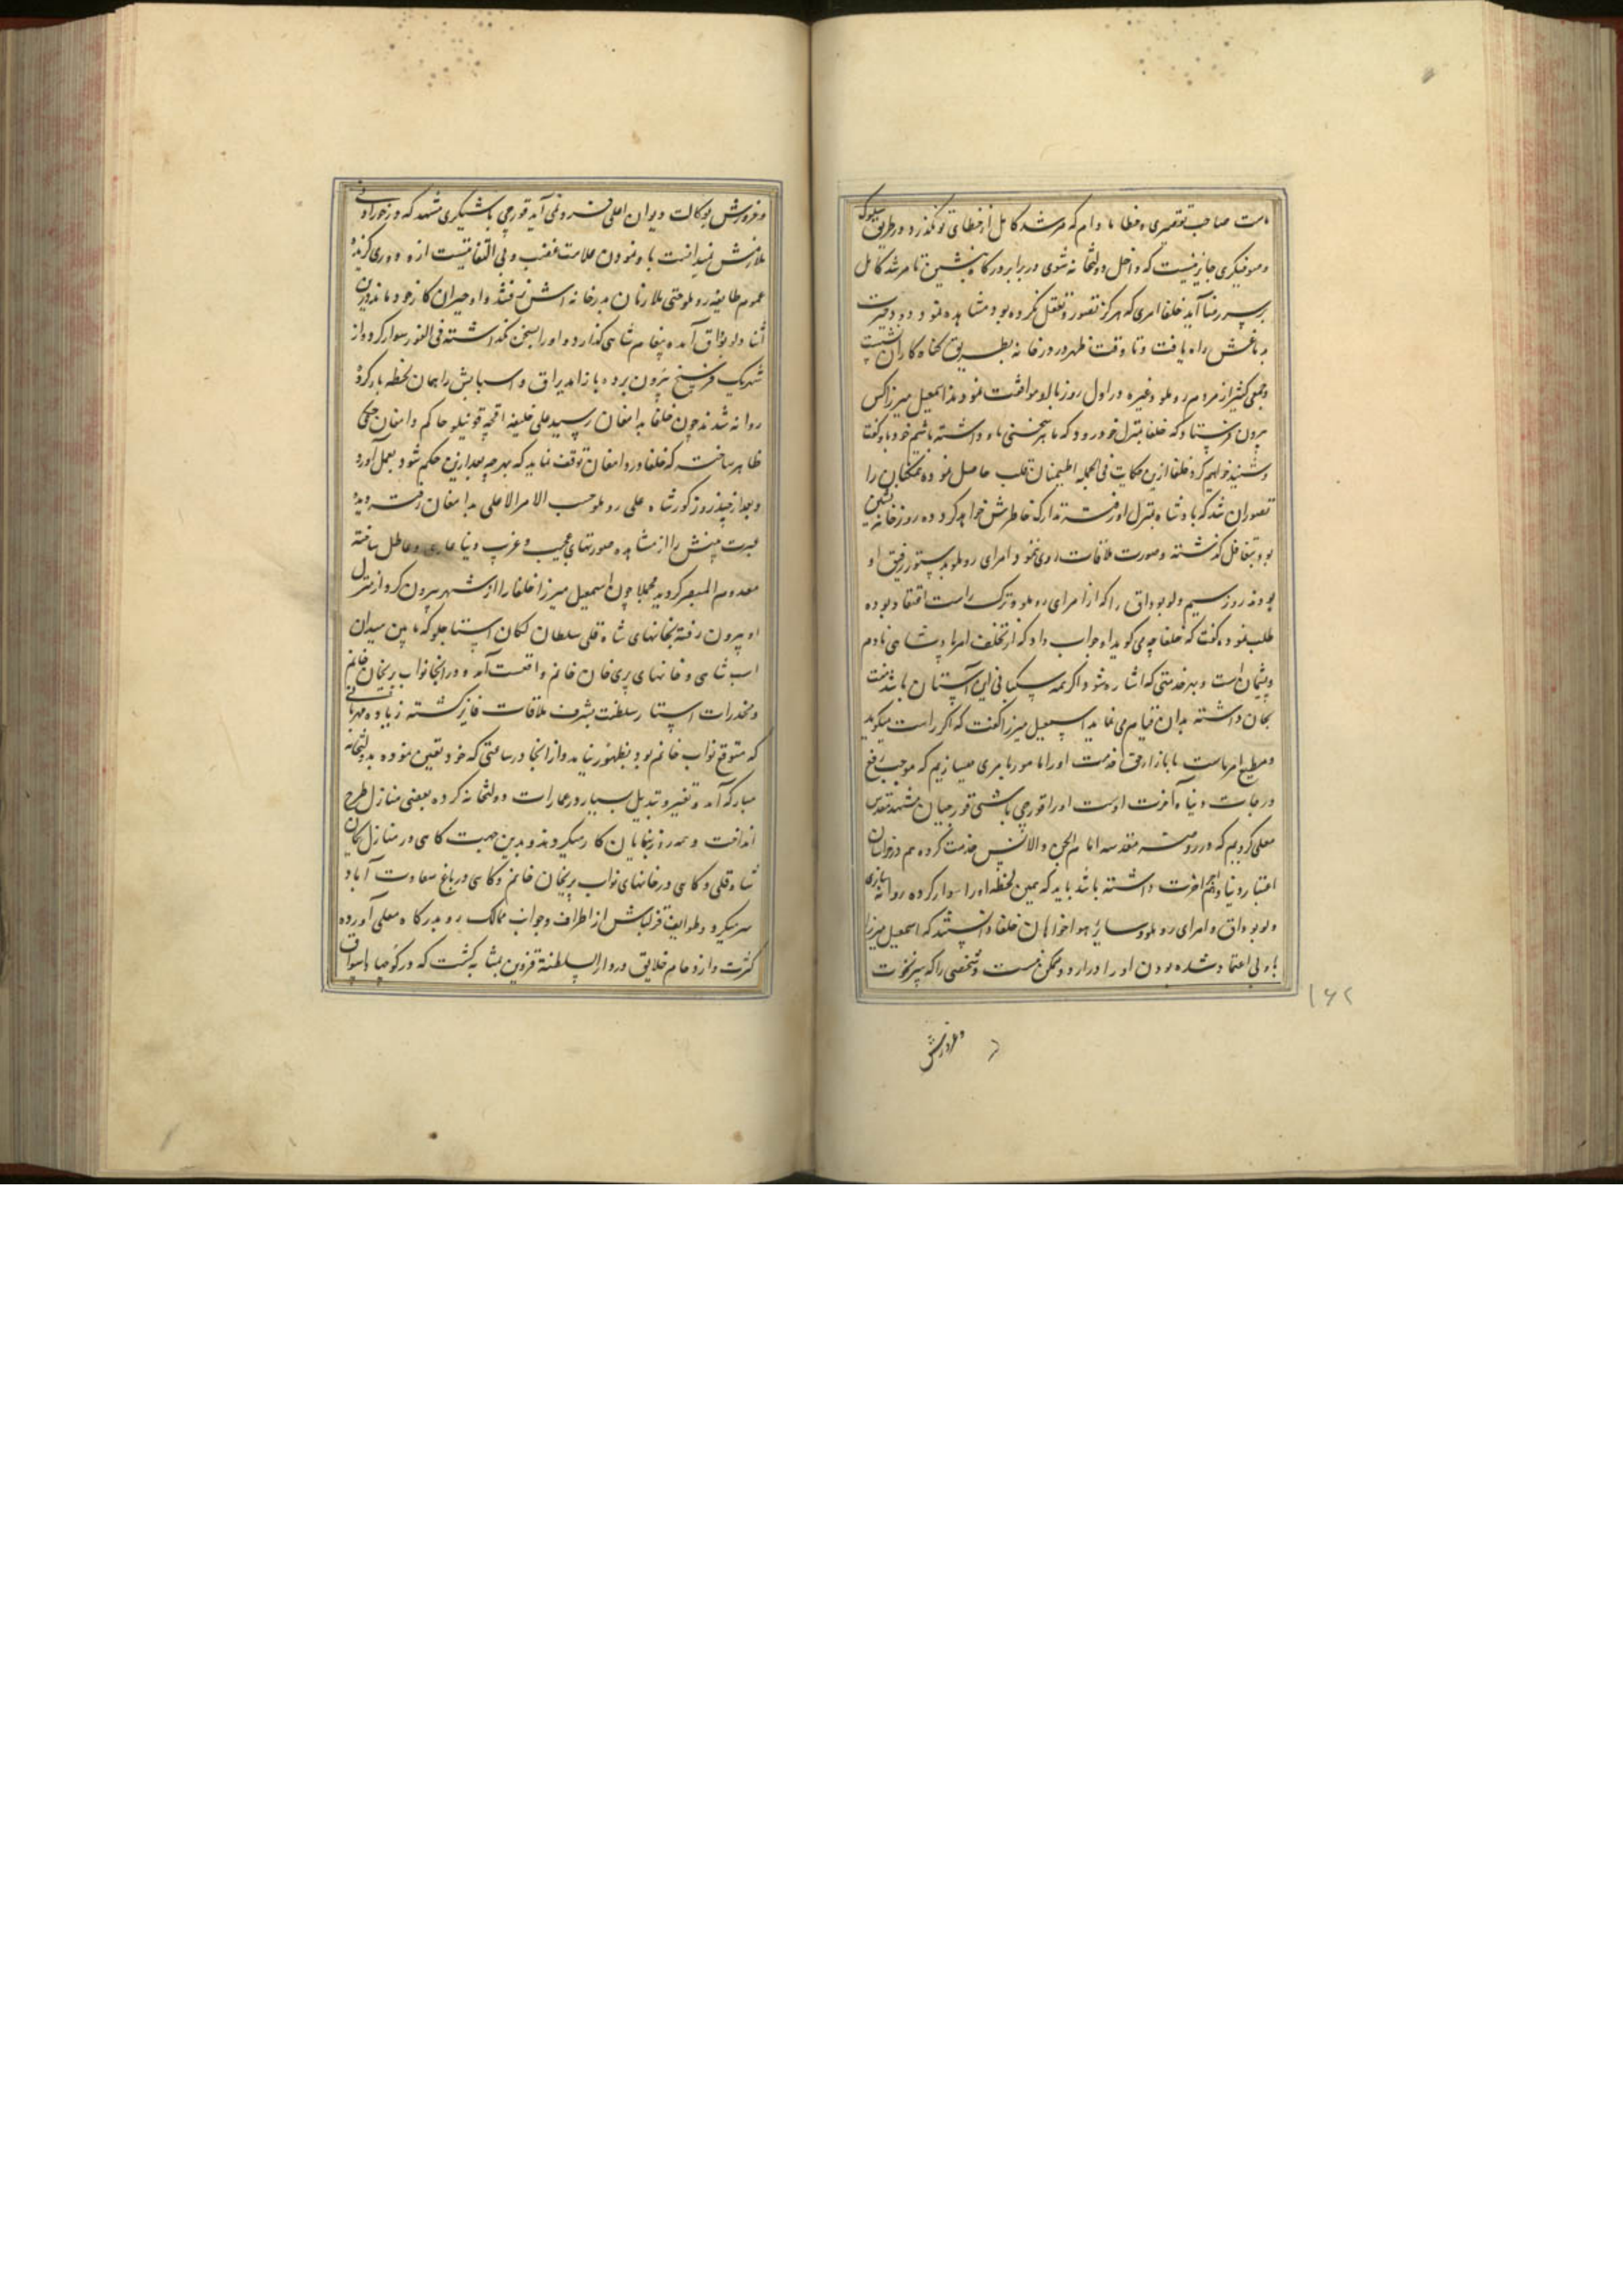 ماست صاحب تقصیری و خطا مادام که مرشد کامل از خطای تو نگذرد در طریق سلوک
و صوفیگری جایز نیست که داخل دولتخانه شوی در برابر درگاه بنشین تا مرشد کامل
بر سر رضا آید خلفا امری که هرگز تصور و تعقل نکرده بود مشاهده نمود دود حیرت
بدماغش راه یافت و تا وقت ظهر در درخانه بطریق گناه کاران نشست
و جمعی کثیر از مردم روملو و غیره در اول روز با او موافقت نمودند اسمعیل میرزا کس
بیرون فرستاد که خلفا بمنزل خود رود که ما هر سخنی باو داشته باشیم خود باو گفت
و شنید خواهیم کرد خلفا ازین حکایت فی الجمله اطمینان قلب حاصل نموده همگنان را
تصور آن شد که پادشاه بمنزل او رفته تدارک خاطرش خواهد کرد دو روز خانه نشین
بود بتغافل گذشته صورت ملاقات روی ننمود امرای روملو بدستور رفیق او
بودند روز سیم دلو بوداق را که از امرای روملو و ترک راست اعتقاد بوده
طلب نموده گفت که خلفا چه می گوید او جواب داد که از تخلف امر پادشاهی نادم
و پشیمان است و بهر خدمتی که اشاره شود اگر همه سگبانی این آستان باشد منت
بجان داشته بدان قیام می نماید اسمعیل میرزا گفت که اگر راست میگوید
و مطیع امر ماست ما بازار حق خدمت او را مامور بامری میسازیم که موجب رفع
درجات دنیا و آخرت اوست او را قورچی باشی قورچیان مشهد مقدس
معلی کردیم که در روضه مقدسه امام الجن و الانس خدمت کرده هم در خراسان
اعتبار دنیا و هم اجر آخرت داشته باشد باید که همین لحظه او را سوار کرده روانه سازی
دلو بوداق و امرای روملو و سایر هوا خواهان خلفا دانستند که اسمعیل میرزا
باو بی اعتماد شده بودن او را در اردو ممکن نیست و شخصی را که سر نخوت
و غرورش
۱۶۲
و غرورش بوکالت دیوان اعلی فرو نمی آید قورچی باشیگری مشهد که در خور ادنی
ملازمش نمیدانست باو نمودن علامت غضب و بی التفاتیست ازو دوری گزیده
عموم طایفه روملو حتی ملازمان بدرخانه اش نرفتند و او حیران کار خود ماند درین
اثنا دلو بوداق آمده پیغام شاهی گذارد و او را بسخن نگذاشته فی الفور سوار کرده از
شهر یک فرسخ بیرون برده باز آمد یراق و اسبابش را همان لحظه بار کرده
روانه شدند چون خلفا بدامغان رسید علی خلیفه اقچه قوینلو حاکم دامغان حکمی
ظاهر ساخت که خلفا در دامغان توقف نماید که بهر چه بعد ازین حکم شود بعمل آورد
و بعد از چند روز کور شاه علی روملو حسب الامر الاعلی بدامغان رفته دیده
عبرت بینش را از مشاهده صورتهای عجیب و غریب دنیا عاری و عاطل ساخته
معدوم البصر گردید مجملا چون اسمعیل میرزا خلفا را از شهر بیرون کرد از منزل
او بیرون رفته بخانهای شاه قلی سلطان یکان استاجلو که مابین میدان
اسب شاهی و خانهای پری خان خانم واقعست آمد و در انجا نواب پریخان خانم
و مخدرات استار سلطنت بشرف ملاقات فایز گشته زیاده مهربانئی
که متوقع نواب خانم بود بظهور نیامد و از انجا در ساعتی که خود تعین نموده بدولتخانه
مبارکه آمد و تغیر و تبدیل بسیار در عمارات دولتخانه کرده بعضی منازل طرح
انداخت و همه روزه بنایان کار میکردند و بدین جهت گاهی در منازل یکان
شاه قلی و گاهی در خانهای نواب پریخان خانم و گاهی در باغ سعادت آباد
بسر میکرد و طوایف قزلباش از اطراف و جوانب ممالک رو بدرگاه معلی آورده
کثرت و ازدحام خلایق در دار السلطنة قزوین بمثابه گشت که در کوچها و اسواق